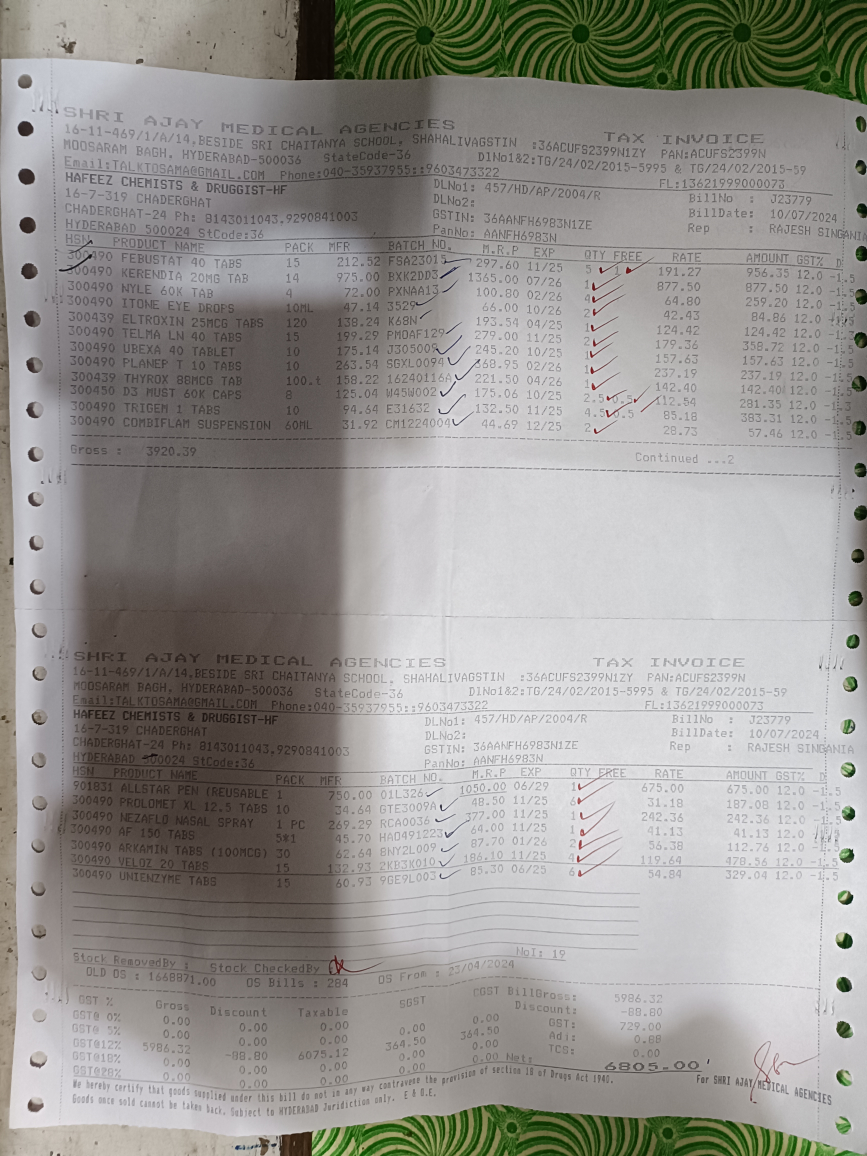 SHRI AJAY MEDICAL AGENCIES TAX INVOICE
16-11-469/1/A/14,BESIDE SRI CHAITANYA SCHOOL, SHAHALIVAGSTIN :36ACUFS2399N1ZY PAN:ACUFS2399N
MOOSARAM BAGH, HYDERABAD-500036 StateCode-36 DlNo1&2:TG/24/02/2015-5995 & TG/24/02/2015-59
Email:TALKTOSAMA@GMAIL.COM Phone:040-35937955::9603473322 FL:13621999000073
HAFEEZ CHEMISTS & DRUGGIST-HF DLNo1: 457/HD/AP/2004/R BillNo : J23779
16-7-319 CHADERGHAT DLNo2: BillDate: 10/07/2024
CHADERGHAT-24 Ph: 8143011043,9290841003 GSTIN: 36AANFH6983N1ZE Rep : RAJESH SINGANIA
HYDERABAD 500024 StCode:36 PanNo: AANFH6983N
HSN PRODUCT NAME PACK MFR BATCH NO. M.R.P EXP QTY FREE RATE AMOUNT GST% D
300490 FEBUSTAT 40 TABS 15 212.52 FSA23015 297.60 11/25 5 1 191.27 956.35 12.0 -1.5
300490 KERENDIA 20MG TAB 14 975.00 BXK2DD3 1365.00 07/26 1 877.50 877.50 12.0
300490 NYLE 60K TAB 4 72.00 PXNAA13 100.80 02/26 4 64.80 259.20 12.0 -1.5
300490 ITONE EYE DROPS 10ML 47.14 3529 66.00 10/26 2 42.43 84.86 12.0
300439 ELTROXIN 25MCG TABS 120 138.24 K68N 193.54 04/25 1 124.42 124.42 12.0
300490 TELMA LN 40 TABS 15 199.29 PMOAF129 279.00 11/25 2 179.36 358.72 12.0 -1.5
300490 UBEXA 40 TABLET 10 175.14 J305009 245.20 10/25 1 157.63 157.63 12.0
300490 PLANEP T 10 TABS 10 263.54 SGXL0094 368.95 02/26 1 237.19 237.19 12.0
300439 THYROX 88MCG TAB 100.t 158.22 16240116A 221.50 04/26 1 142.40 142.40 12.0
300450 D3 MUST 60K CAPS 8 125.04 W45W002 175.06 10/25 2.5 0.5 112.54 281.35 12.0
300490 TRIGEM 1 TABS 10 94.64 E31632 132.50 11/25 4.5 0.5 85.18 383.31 12.0 -1.5
300490 COMBIFLAM SUSPENSION 60ML 31.92 CM1224004 44.69 12/25 2 28.73 57.46 12.0 -1.5
Gross : 3920.39 Continued ...2
SHRI AJAY MEDICAL AGENCIES TAX INVOICE
16-11-469/1/A/14,BESIDE SRI CHAITANYA SCHOOL, SHAHALIVAGSTIN :36ACUFS2399N1ZY PAN:ACUFS2399N
MOOSARAM BAGH, HYDERABAD-500036 StateCode-36 DlNo1&2:TG/24/02/2015-5995 & TG/24/02/2015-59
Email:TALKTOSAMA@GMAIL.COM Phone:040-35937955::9603473322 FL:13621999000073
HAFEEZ CHEMISTS & DRUGGIST-HF DLNo1: 457/HD/AP/2004/R BillNo : J23779
16-7-319 CHADERGHAT DLNo2: BillDate: 10/07/2024
CHADERGHAT-24 Ph: 8143011043,9290841003 GSTIN: 36AANFH6983N1ZE Rep : RAJESH SINGANIA
HYDERABAD 500024 StCode:36 PanNo: AANFH6983N
HSN PRODUCT NAME PACK MFR BATCH NO. M.R.P EXP QTY FREE RATE AMOUNT GST% D
901831 ALLSTAR PEN (REUSABLE 1 750.00 01L326 1050.00 06/29 1 675.00 675.00 12.0 -1.5
300490 PROLOMET XL 12.5 TABS 10 34.64 GTE3009A 48.50 11/25 6 31.18 187.08 12.0 -1.5
300490 NEZAFLO NASAL SPRAY 1 PC 269.29 RCA0036 377.00 11/25 1 242.36 242.36 12.0 -1.5
300490 AF 150 TABS 5*1 45.70 HAO491223 64.00 11/25 1 41.13 41.13 12.0
300490 ARKAMIN TABS (100MCG) 30 62.64 BNY2L009 87.70 01/26 2 56.38 112.76 12.0 -1.5
300490 VELOZ 20 TABS 15 132.93 2KB3K010 186.10 11/25 4 119.64 478.56 12.0 -1.5
300490 UNIENZYME TABS 15 60.93 9GE9L003 85.30 06/25 6 54.84 329.04 12.0 -1.5
NoI: 19
Stock RemovedBy : Stock CheckedBy
OLD OS : 1668871.00 OS Bills : 284 OS From : 23/04/2024
GST % Gross Discount Taxable SGST CGST BillGross: 5986.32
GST@ 0% 0.00 0.00 0.00 0.00 0.00 Discount: -88.80
GST@ 5% 0.00 0.00 0.00 0.00 0.00 GST: 729.00
GST@12% 5986.32 -88.80 6075.12 364.50 364.50 Adj: 0.88
GST@18% 0.00 0.00 0.00 0.00 0.00 TCS: 0.00
GST@28% 0.00 0.00 0.00 0.00 0.00 Net: 6805.00
We hereby certify that goods supplied under this bill do not in any way contravene the provision of section 18 of Drugs Act 1940. For SHRI AJAY MEDICAL AGENCIES
Goods once sold cannot be takes back. Subject to HYDERABAD Juridiction only. E & O.E.